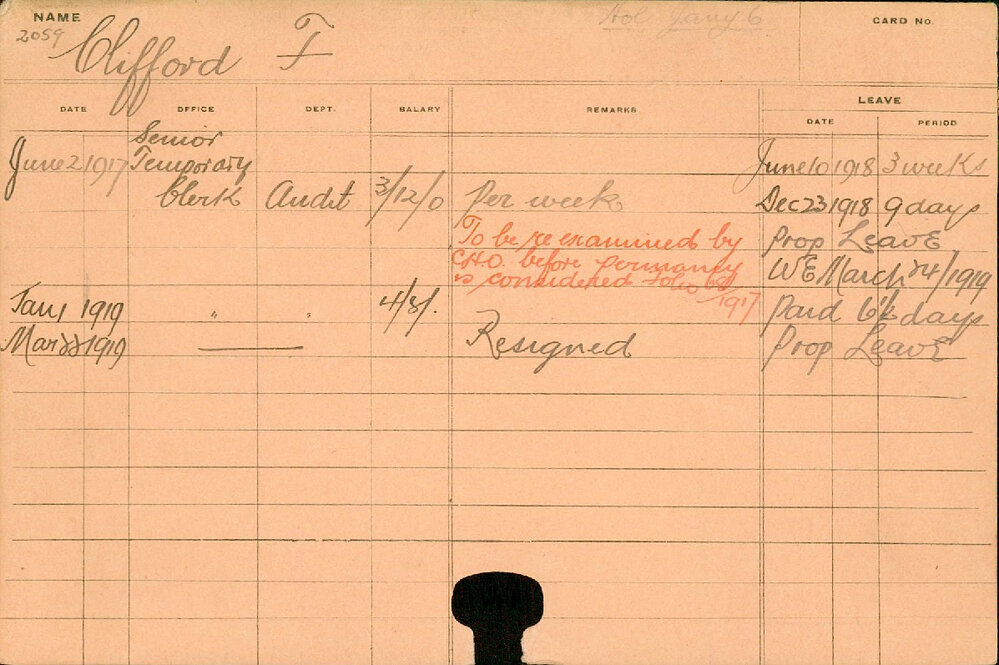 NAME
2059
Clifford F
Hol Jany 6
CARD No.
DATE OFFICE DEPT. SALARY REMARKS LEAVE
DATE PERIOD
Senior
June 2 1917 Temporary June 10 1918 3 weeks
Clerk Audit 3/12/0 per week Dec 23 1918 9 days
To be re examined by Prop Leave
C.H.O. before permancy WE March 24/1919
is considered folio
1917
Jan 1 1919 " " 4/8/. Paid 6½ days
Mar 22 1919 Resigned Prop Leave